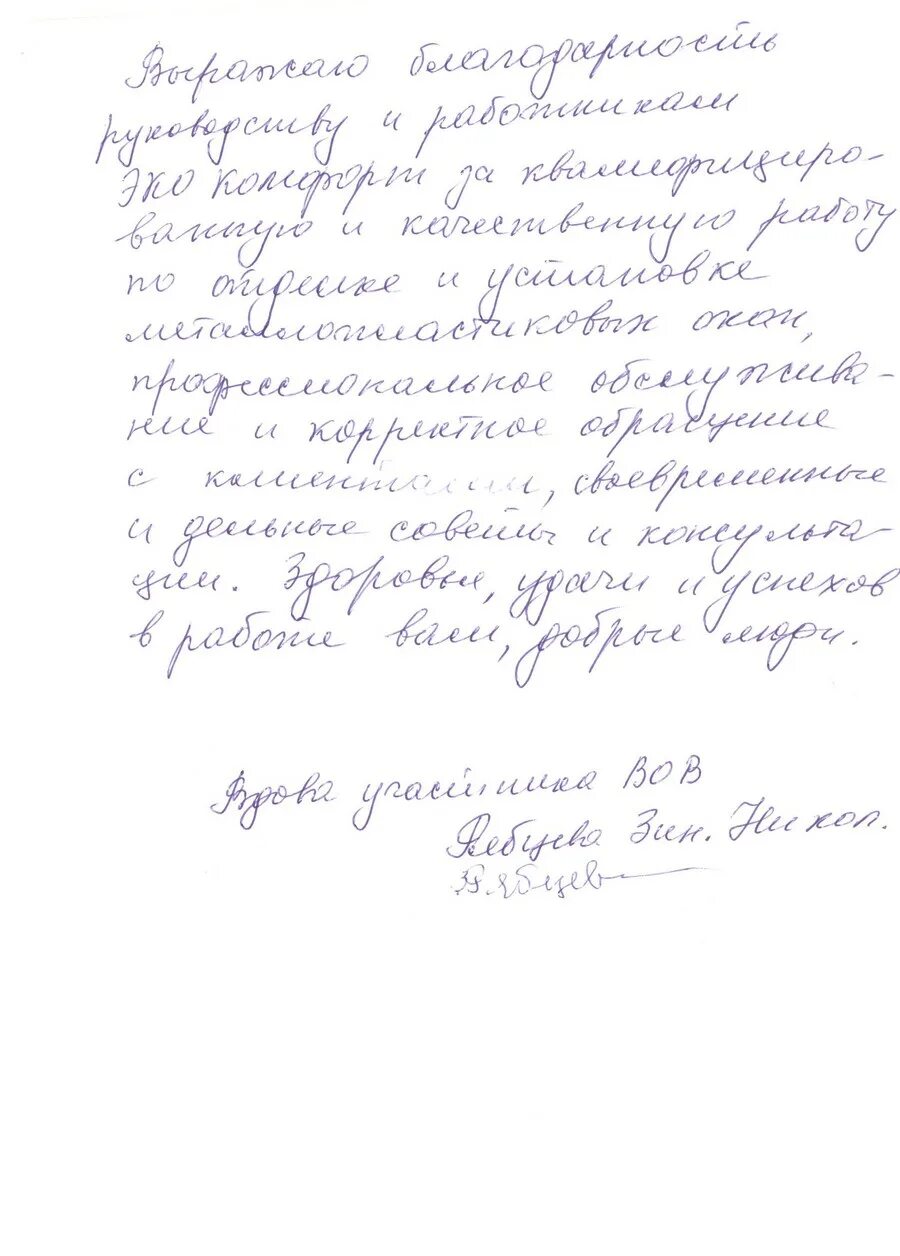 Выражаю благодарность
руководству и работникам
Эко Комфорт за квалифициро-
ванную и качественную работу
по отделке и установке
металлопластиковых окон,
профессиональное обслужива-
ние и корректное обращение
с клиентами, своевременные
и дельные советы и консульта-
ции. Здоровья, удачи и успехов
в работе вам, добрые люди.
Вдова участника ВОВ
Рябцева Зин. Никол.
Рябцев